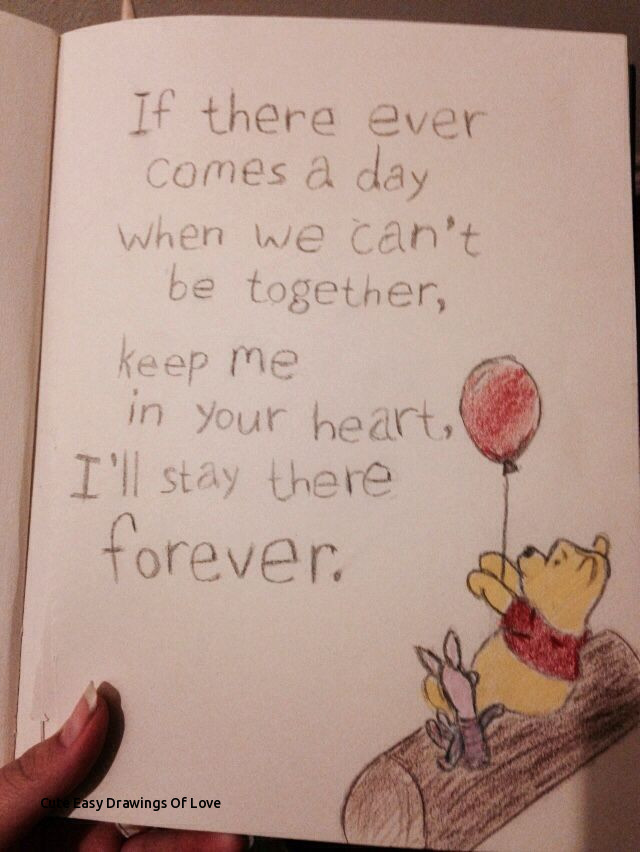 If there ever
comes a day
when we can't
be together,
keep me
in your heart,
I'll stay there
forever.
Cute Easy Drawings Of Love